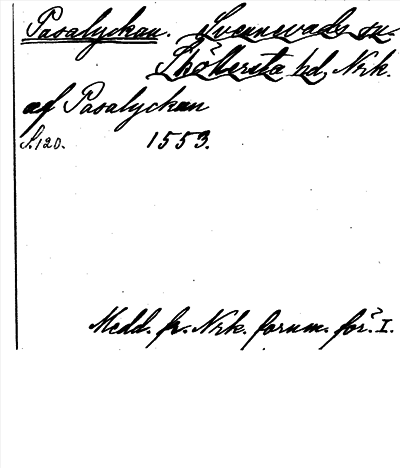 Pasalyckan. Svennevads sn.
Sköllersta hd, Nrk.
af Pasalyckan
S. 120. 1553.
Medd. fr. Nrk. fornm. för. I.